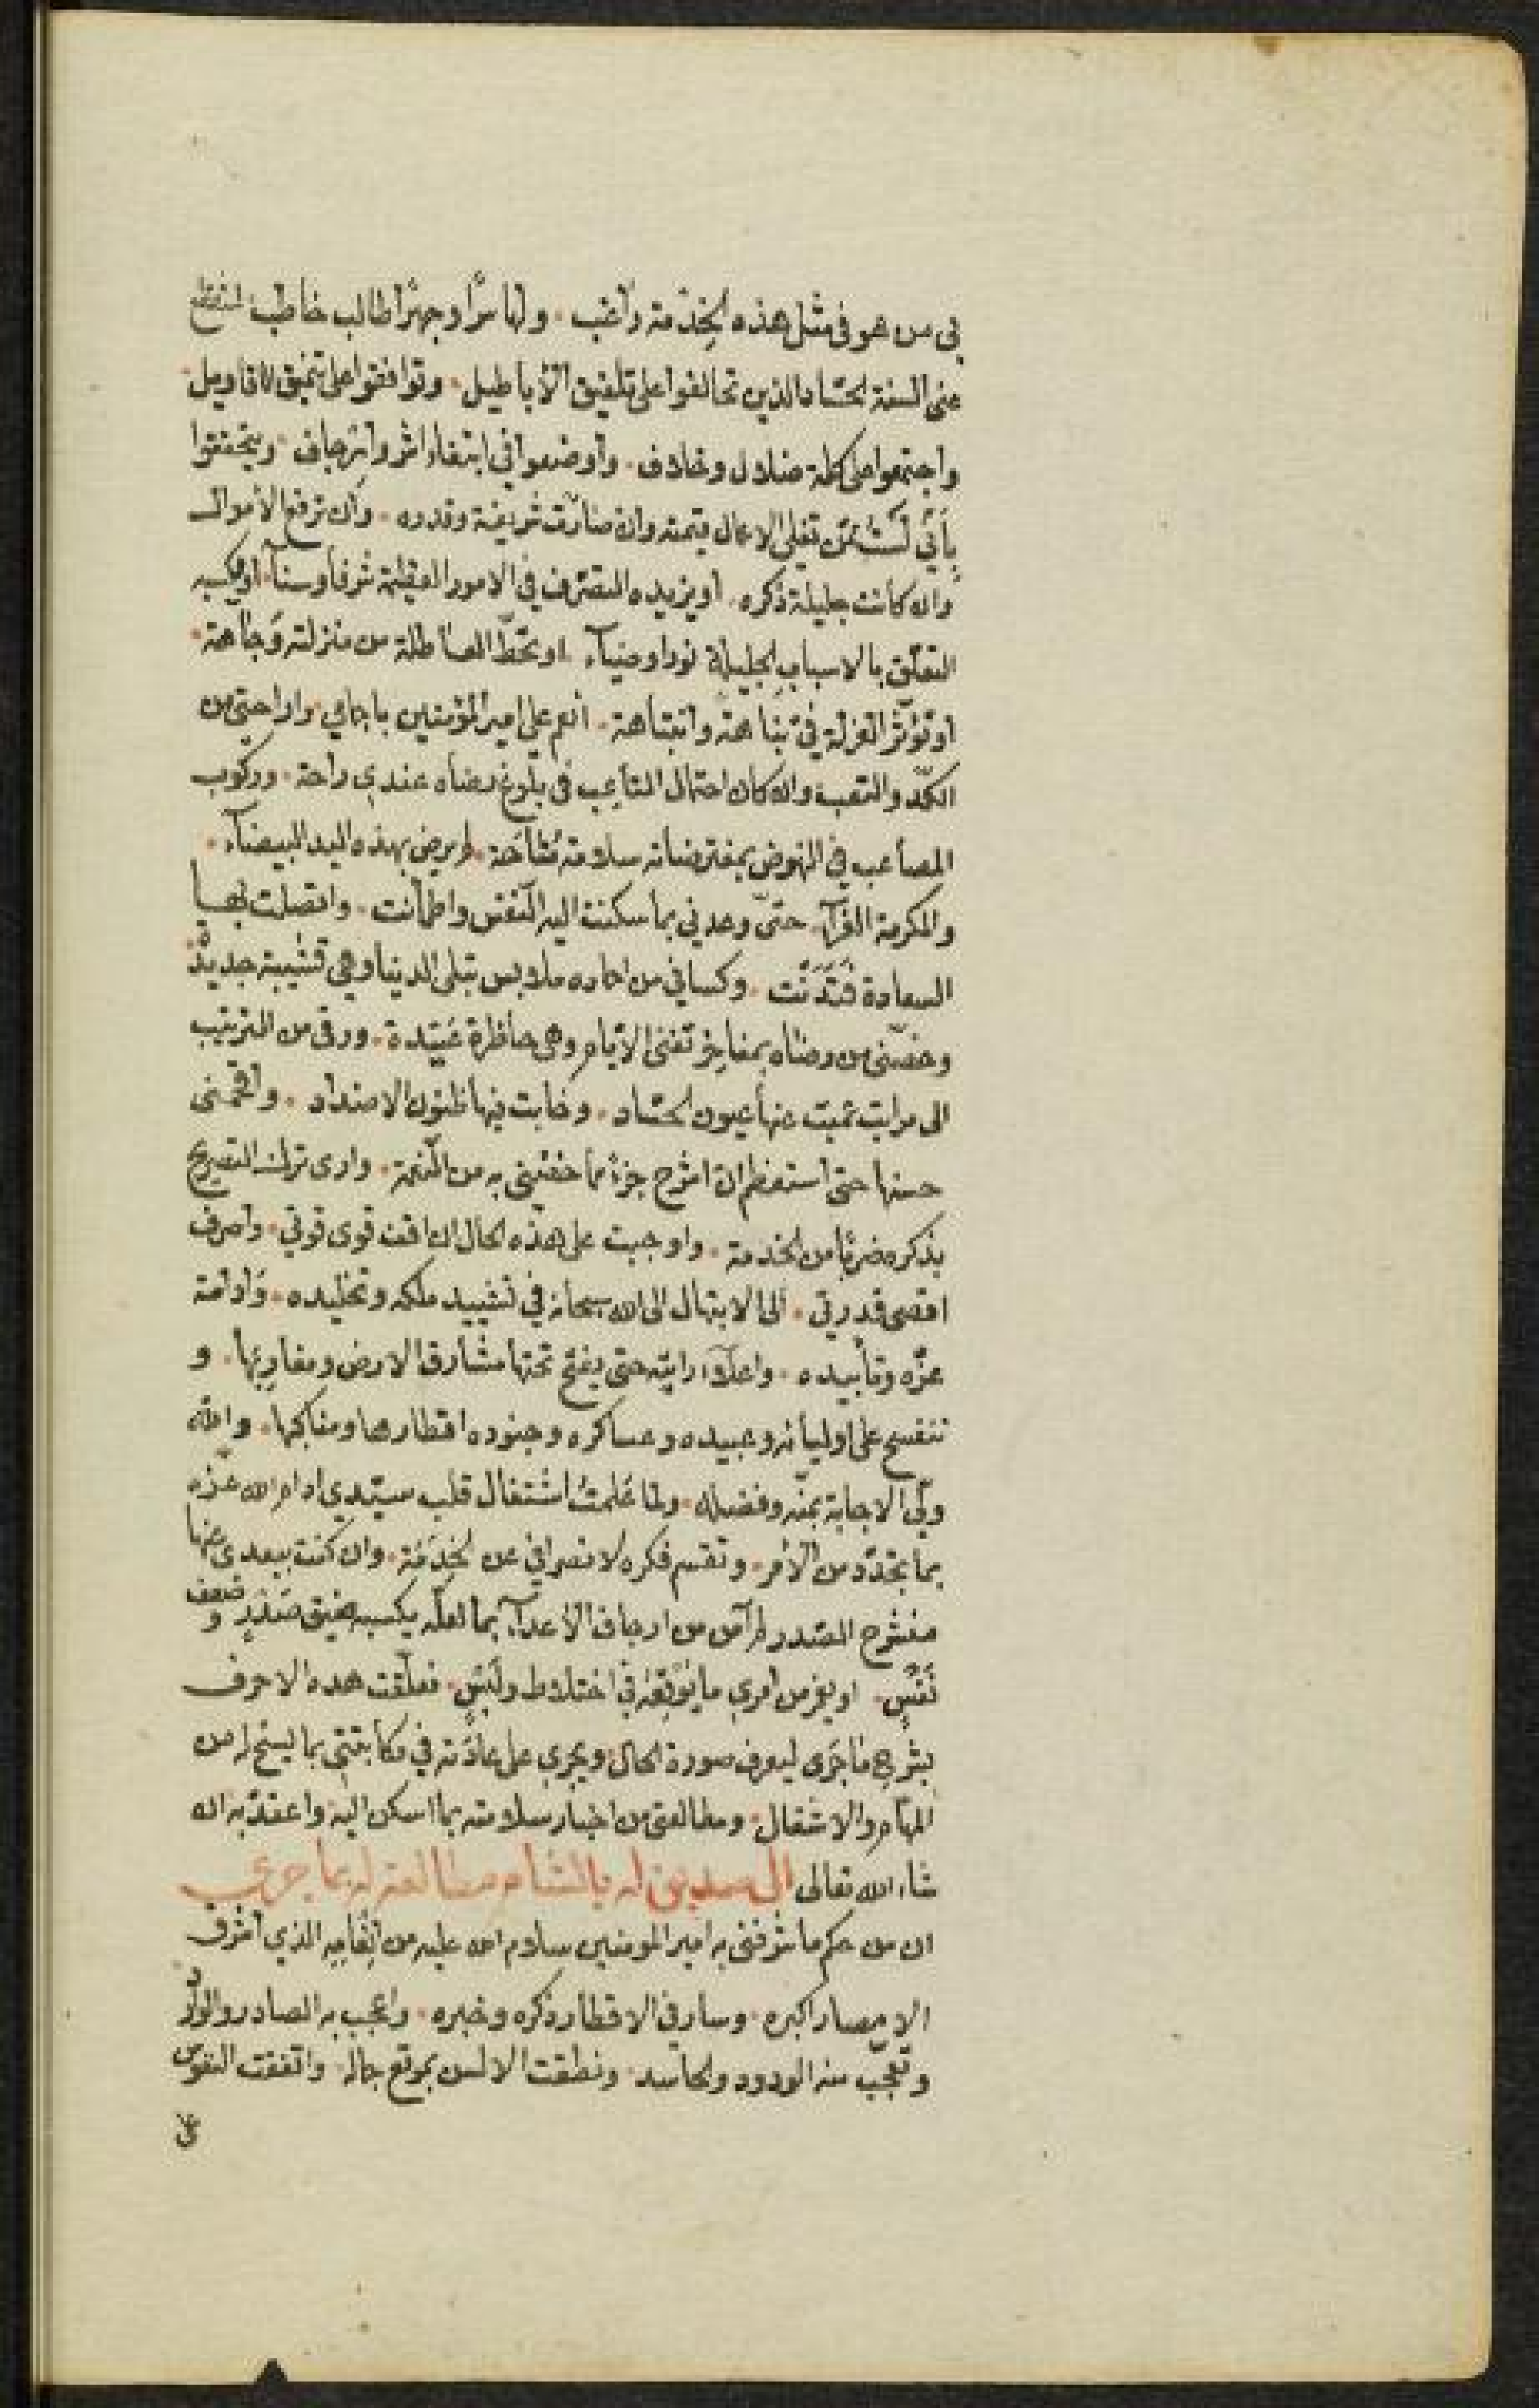 بى من هو فى مثل هذه الخدمة راغب. ولها سرًّا وجهرًا طالب خاطب لتنقطع
عنى السنة الحسّاد الذين تحالفوا على تلفيق الأباطيل. وتوافقوا على تنميق الاقاويل.
واجتمعوا على كلمة ضلال وخلاف. وأوضعوا في ابتغاء اشر وارجاف. ويتحققوا
بأنّي لستُ ممّن تغلى الاعمال قيمته وان صارت شريفة وقدره. وان ترفع الأموال
وان كانت جليلة ذكره. أو يزيده التصرّف في الامور العظيمة شرفاً وسنآءً أو يكسبه
التعلّق بالاسباب الجليلة نورا وضيآء. او تحطّ العاطلة من منزلته وجاهة.
أو تؤثّر العزلة في نباهة وانتباهة. أنعم علي امير المؤمنين باجمامي. واراحتي من
الكدّ والتعب وان كان احتمال المتاعب فى بلوغ رضاه عندي راحة. وركوب
المصاعب في النهوض بمفترضاته سلامة مُتاحة. لم يرض بهذه اليد البيضآء.
والمكرمة الغرّآء. حتىّ وعدني بما سكنت اليه النفس واطمأنت. واتصلت بها
السعادة فتَدَنّت. وكساني من احماده ملابس تبلى الدنيا وهي قشيبة جديدة
وخصّنى من رضاه بمفاخر تفنى الأيّام وهى حاظرة عتيدة. ورقى من الترتيب
الى مراتب نميت عنها عيون الحسّاد. وخابت فيها ظنون الاضداد.
حسنها حتى أستعظم ان اشرح جزءً مما خصّني به من النعمة. وارى ترك التصريح
بذكره ضربًا من الخدمة. واوجبت على هذه الحال ان اقف قوى قوتي. واصرف
اقصى قدرتي. الى الابتهال الى الله سبحانه في تشييد ملكه وتخليده. وادامة
عزّه وتأبيده. واعلاء رايته حتى يفتح تحتها مشارق الارض ومغاربها. و
تنفسح على اوليائه وعبيده وعساكره وجنوده اقطارها ومناكبها. والله
وليّ الاجابة بمنّه وفضله. ولما عَلمتُ اشتغال قلب سيّدي ادام الله عزّه
بما يتجدّد من الأمر. وتقسم فكره لانصرافي عن الخدمة. وان كنت ببعدي عنها
منشرح الصدر لم آمن من ارجاف الأعدآء بما لعلّه يكسبه ضيق صَدْرٍ وضعف
نَفْسٍ. او يغز من امري ما يُوقِعُه في اختلاط ولَبْسٍ. فعلّقت هذه الاحرف
بشرح ما جرى ليعرف صورة الحال ويجري على عادته في مكاتبتي بما يسنح له من
المهام والاشغال. ومطالعتى من اخبار سلامته بما اسكن اليه واعتدّ به ان
شاء الله تعالى الى صديق له بالشام مطالعة له بما جرى
ان من حكم ما شرفنى به امير المومنين سلام الله عليه من انعامه الذي اشرق
الامصار اكبره. وسار في الاقطار ذكره وخبره. واعجب به الصادر والوارد
وتعجّب منه الودود والحاسد. ونطقت الالسن بموقع جماله. واتفقت النفوس
على